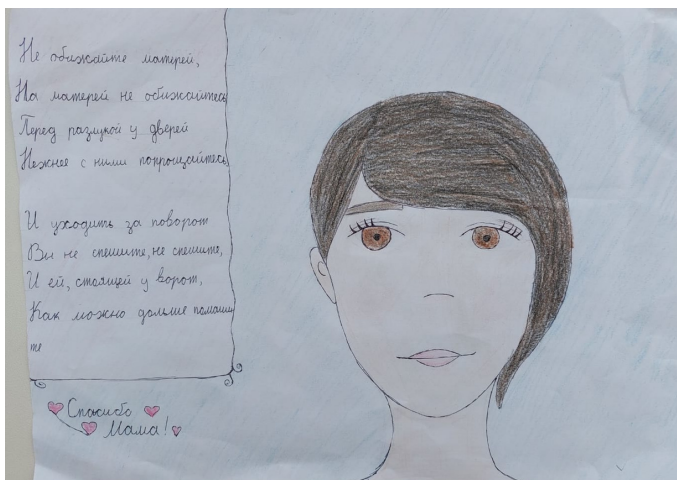 Не обижайте матерей,
На матерей не обижайтесь
Перед разлукой у дверей
Нежнее с ними попрощайтесь,
И уходить за поворот
Вы не спешите, не спешите,
И ей, стоящей у ворот,
Как можно дольше помаши
те
Спасибо
Мама!